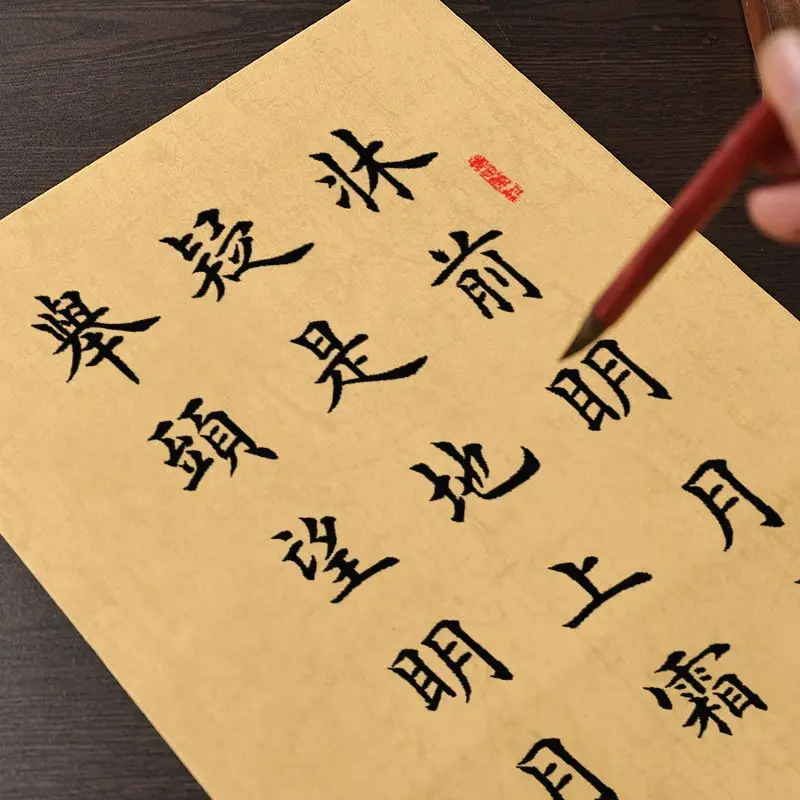 牀前明月
疑是地上霜
舉頭望明月